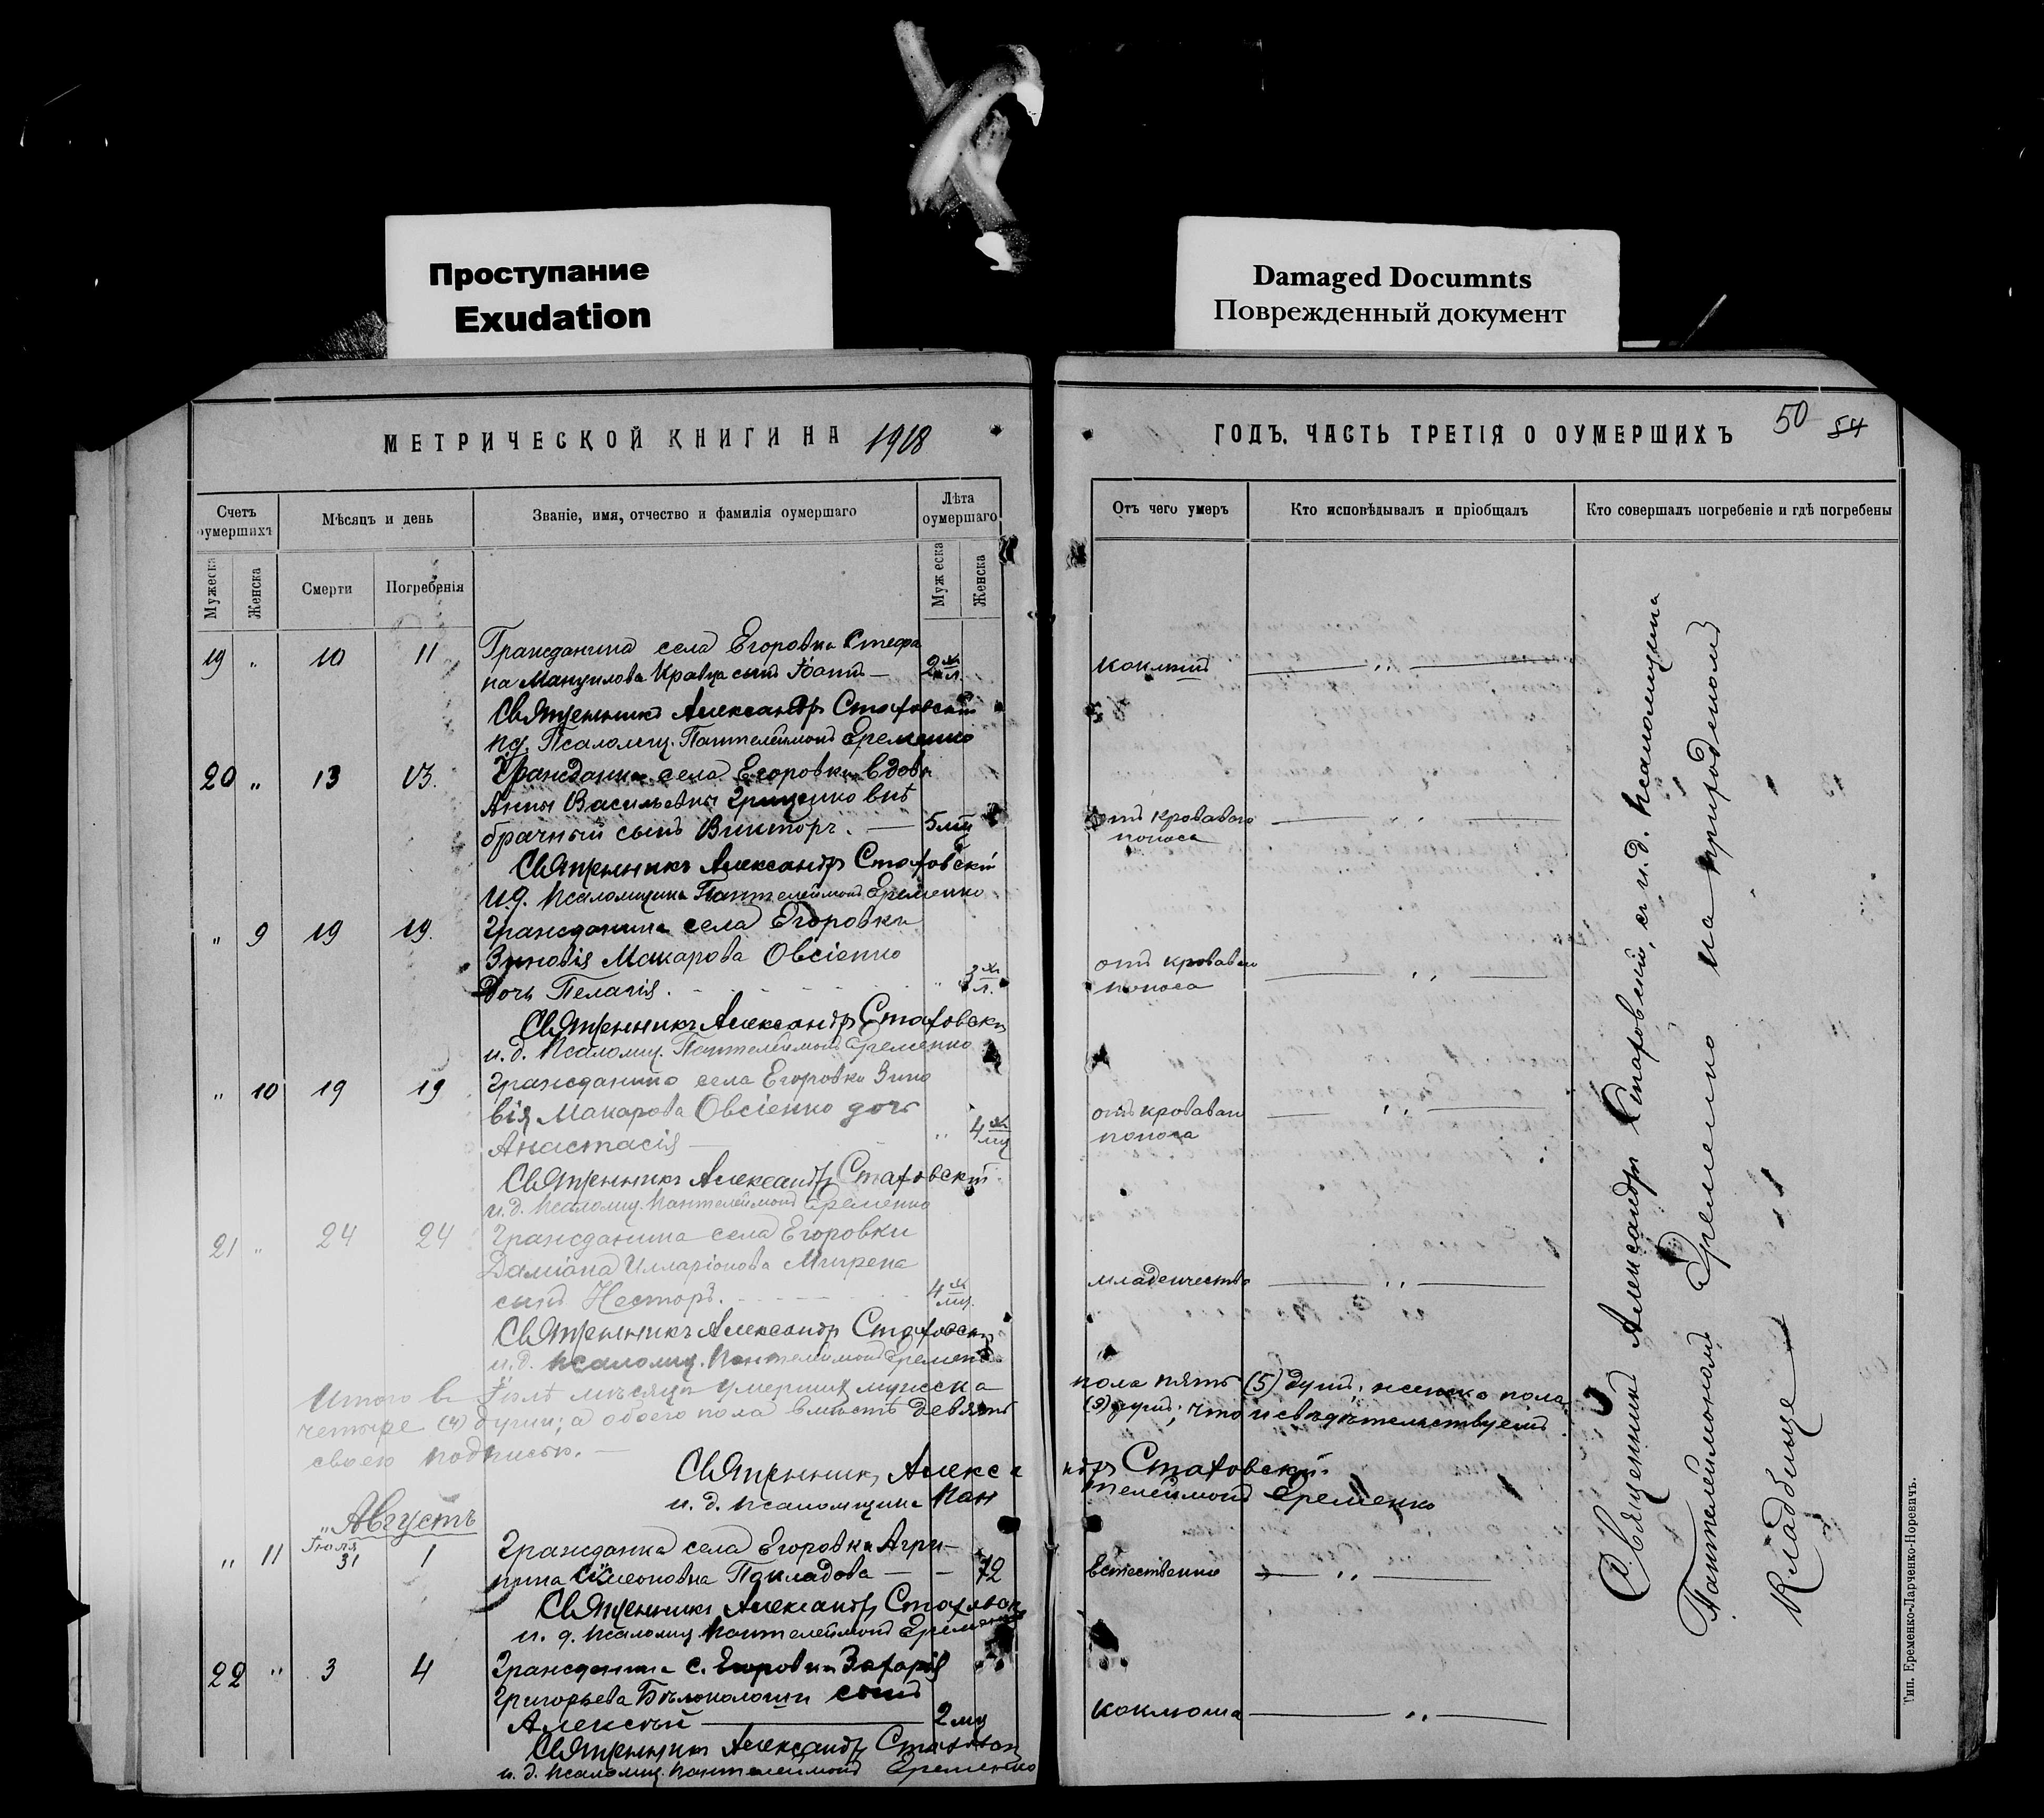 Проступание
Exudation
Damaged Documnts
Поврежденный документ
МЕТРИЧЕСКОЙ КНИГИ НА 1918
Счетъ оумершихъ
Мѣсяцъ и день
Званіе, имя, отчество и фамилія оумершаго
Лѣта оумершаго
Мужеска
Женска
Смерти
Погребенія
Муж еска
Женска
19 " 10 11 Гражданина села Егоровки Стефа
на Мануилова Кравца сынъ Іоаннъ — 2
Священникъ Александръ Стаховскій
Псаломщ. Пантелеймонъ Еременко
20 " 13 13. Гражданки села Егоровки вдовы
Анны Васильевны Грищенко внѣ
брачный сынъ Викторъ. — 5 мц
Священникъ Александръ Стаховскій
И.д. псаломщика Пантелеймонъ Еременко
" 9 19 19. Гражданина села Егоровки
Зиновія Макарова Овсіенко
дочь Пелагія. " 3 л.
Священникъ Александръ Стаховскій
и.д. псаломщ. Пантелеймонъ Еременко
" 10 19 19 Гражданина села Егоровки Зино
вія Макарова Овсіенко дочь
Анастасія — " 4 мц
Священникъ Александръ Стаховскій
и.д. псаломщ. Пантелеймонъ Еременко
21 " 24 24 Гражданина села Егоровки
Даміана Илларіонова Мигрена
сынъ Несторъ. 4 мц.
Священникъ Александръ Стаховскій
и.д. псаломщ. Пантелеймонъ Еременко
Итого в Іюлѣ мѣсяцѣ умершихъ мужска
четыре (4) души; а обоего пола вмѣстѣ девять
своею подписью. —
Священникъ Алекса
и.д. псаломщика Пан
Августъ
" 11 Іюля 31 1 Гражданка села Егоровки Агри-
пина Симеоновна Покладова — — 72
Священникъ Александръ Стаховскій
и.д. псаломщ. Пантелеймонъ Еременко
22 " 3 4 Гражданина с. Егоровки Захарія
Григорьева Бѣлоколоши сынъ
Алексѣй — 2 мц
Священникъ Александръ Стаховскій
и.д. псаломщ. Пантелеймонъ Еременко
ГОДЪ. ЧАСТЬ ТРЕТІЯ О ОУМЕРШИХЪ 50 54
Отъ чего умеръ
Кто исповѣдывалъ и пріобщалъ
Кто совершалъ погребеніе и гдѣ погребены
коклюшъ — " —
отъ кроваваго — " —
поноса
отъ кроваваго — " —
поноса
отъ кроваваго — " —
поноса
младенчества — " —
пола пять (5) душъ, женска пола
(9) душъ; что и свидѣтельствуемъ
ндръ Стаховскій.
телеймонъ Еременко
Естественно — " —
коклюша — " —
Священникъ Александръ Стаховскій, съ и.д. псаломщика
Пантелеймономъ Еременко на приходскомъ
кладбище
Тип. Еременко-Ларченко-Норевичъ.